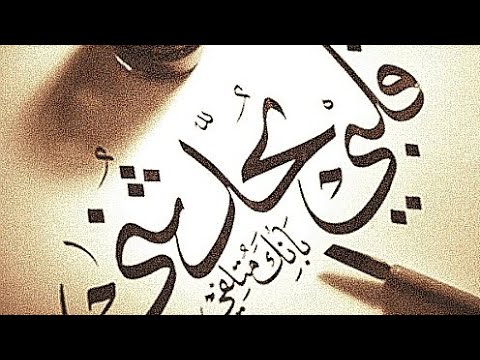 قلبي يُحدّثُني
بِأَنّكَ مُتلِفي